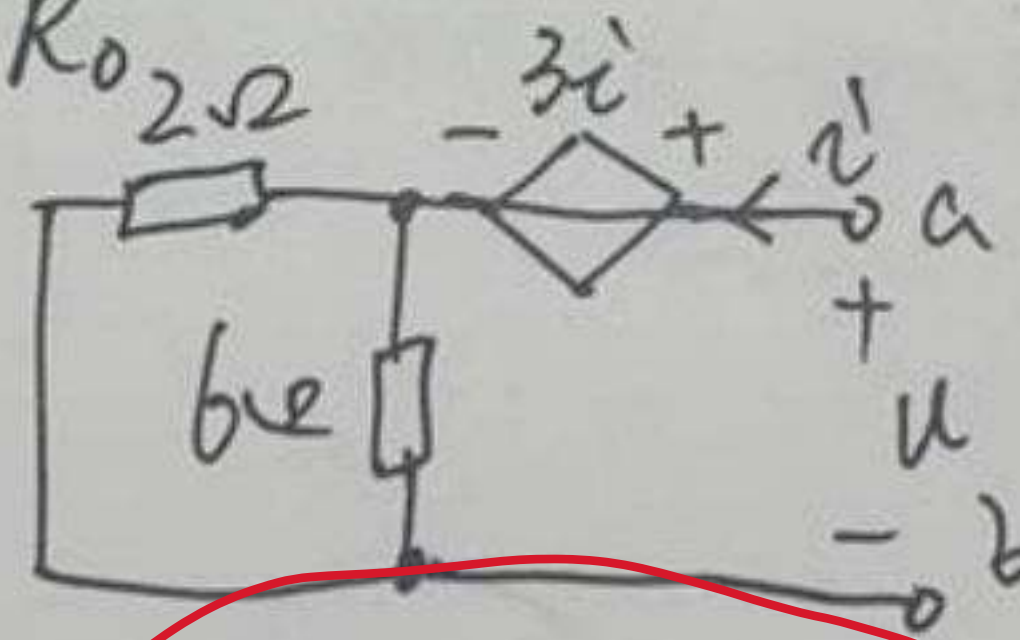 R₀ 2Ω
3i
− +
i
a
+
6Ω
u
− b